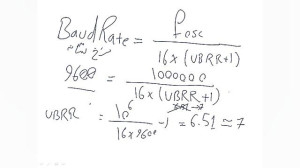 BaudRate = fosc / 16 x (UBRR+1)
9600 = 1000000 / 16 x (UBRR+1)
UBRR = 10^6 / 16 x 9600 - 1 = 6.51 ≃ 7